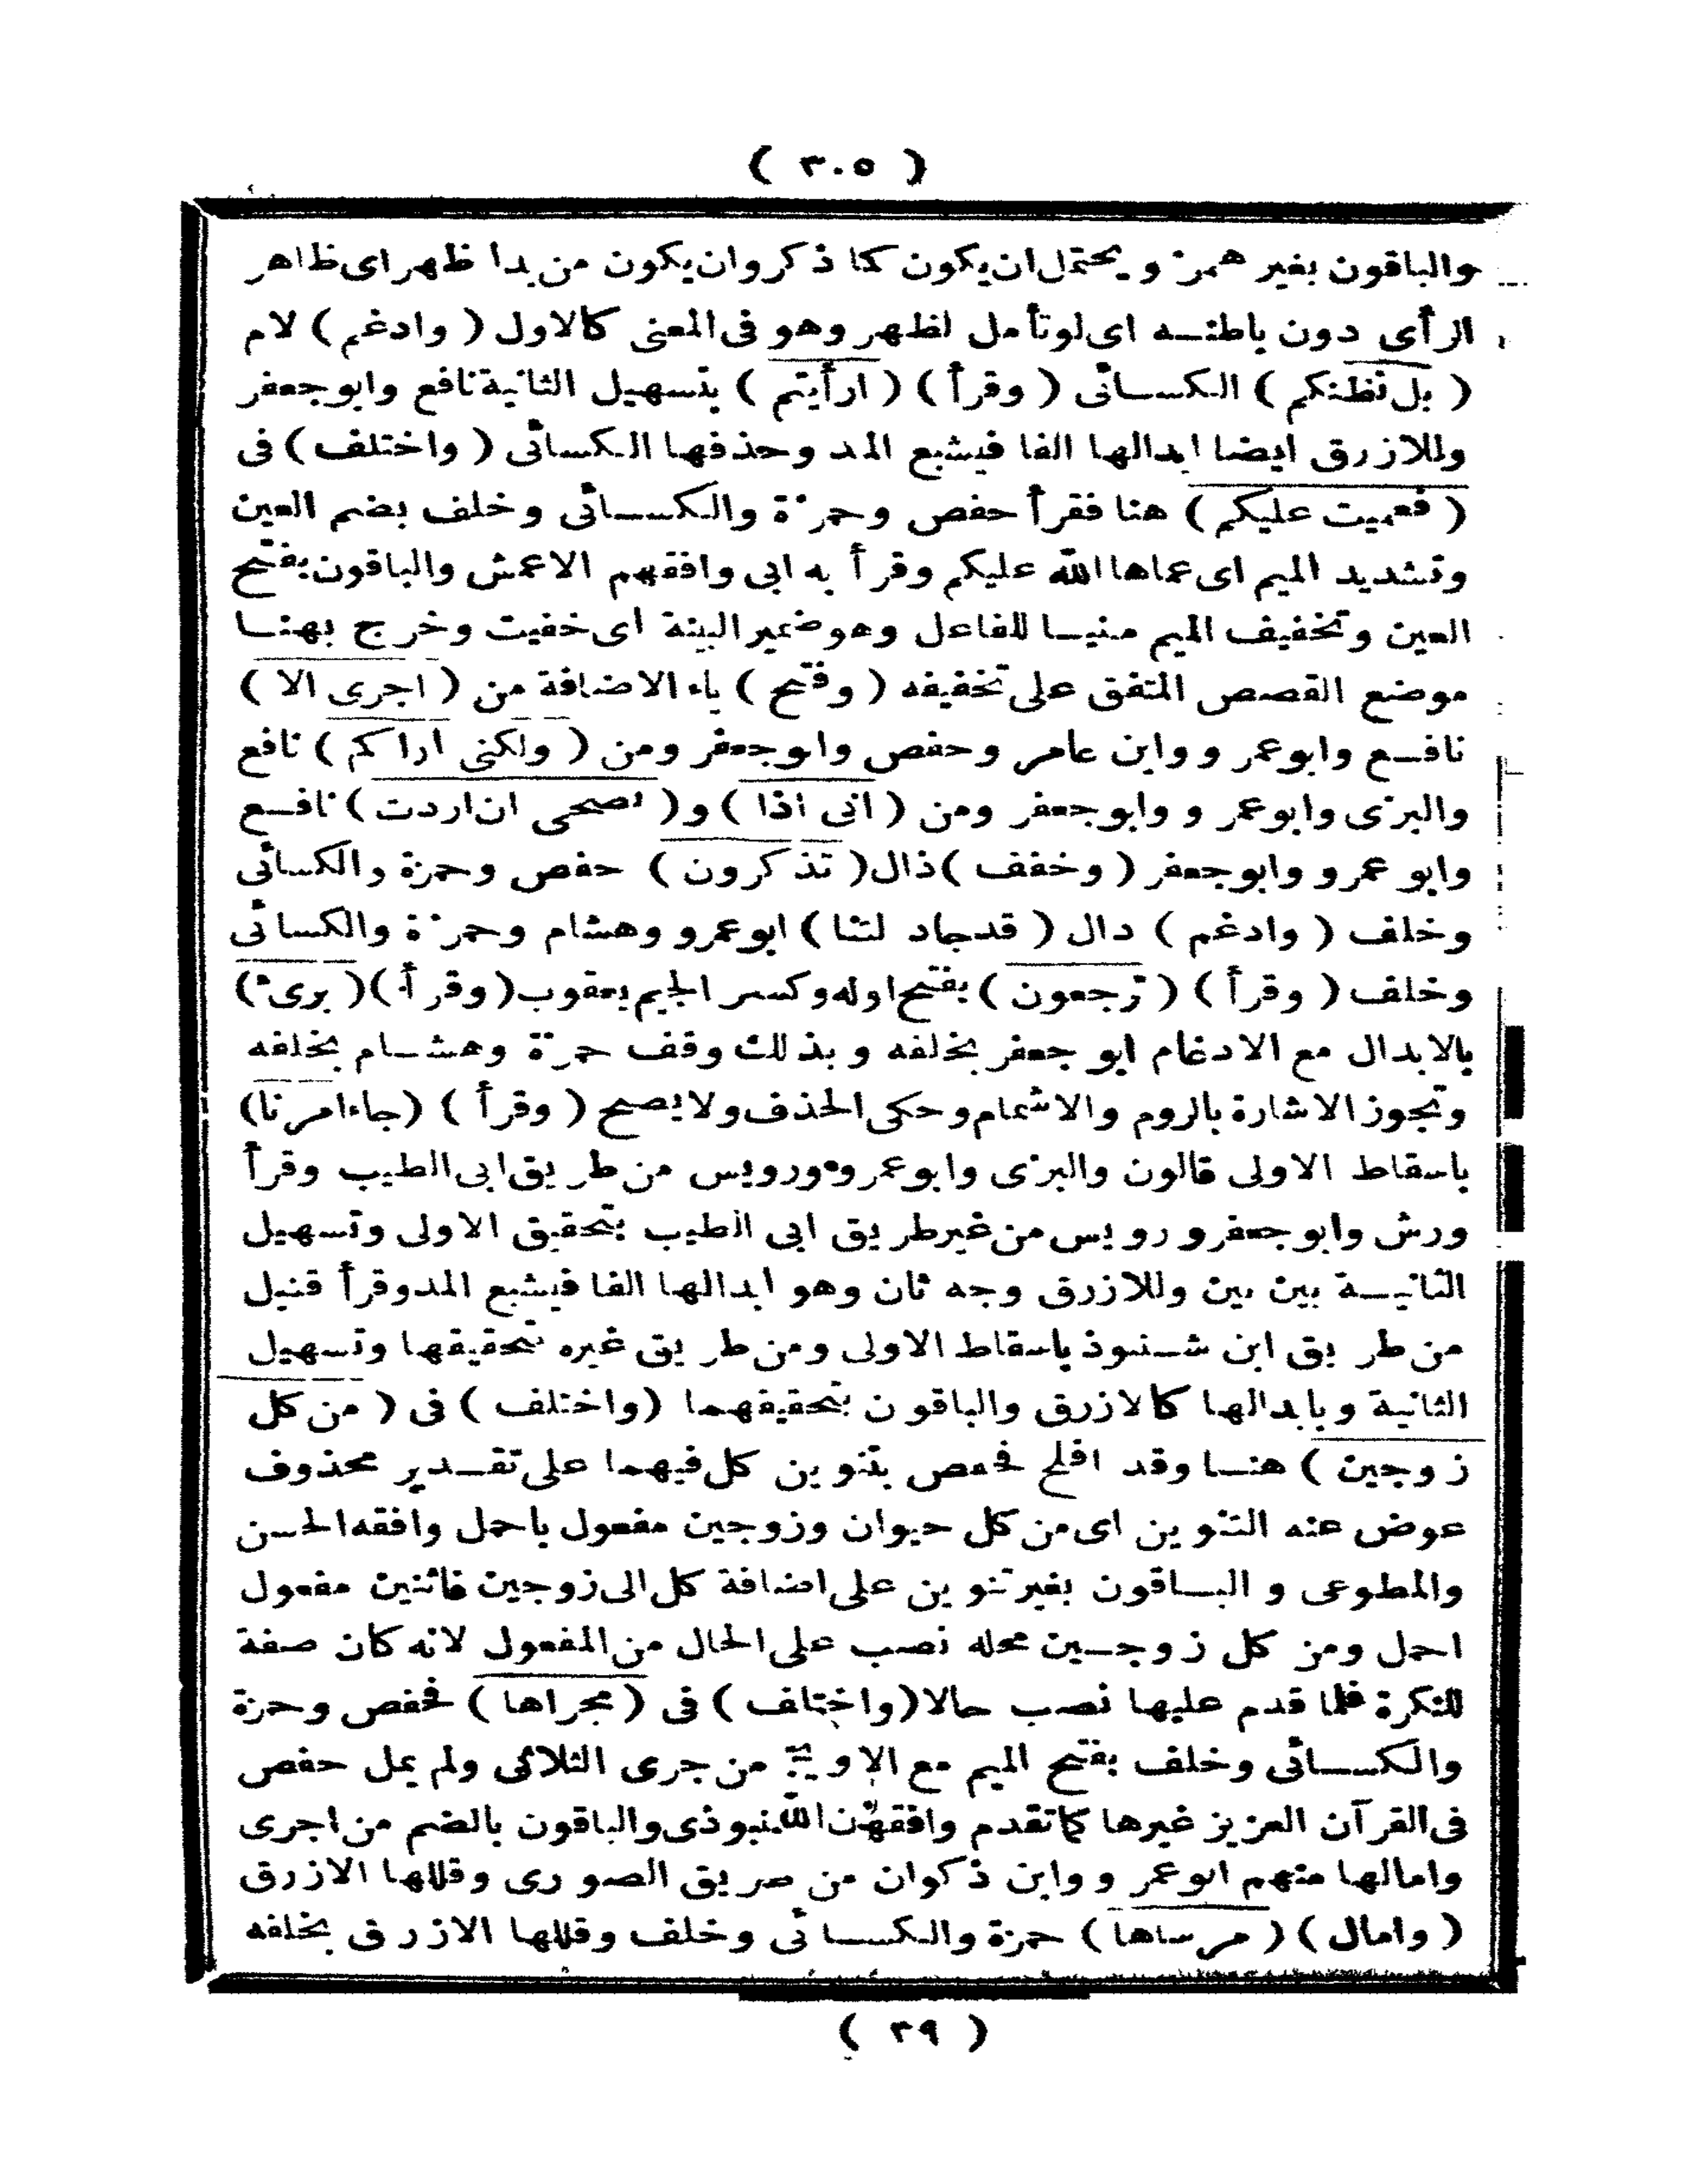 ( ٣٠٥ )
والباقون بغير همز ويحتمل ان يكون كما ذكر وان يكون من بدا ظهر اى ظاهر
الرأى دون باطنه اى لو تأمل لظهر وهو فى المعنى كالاول ( وادغم ) لام
( بل نظنكم ) الكسائى ( وقرأ ) ( ارأيتم ) بتسهيل الثانية نافع وابو جعفر
وللازرق ايضا ابدالها الفا فيشبع المد وحذفها الكسائى ( واختلف ) فى
( فعميت عليكم ) هنا فقرأ حفص وحمزة والكسائى وخلف بضم العين
وتشديد الميم اى عماها الله عليكم وقرأ به ابى وافقهم الاعمش والباقون بفتح
العين وتخفيف الميم مبنيا للفاعل وهو ضمير البينة اى خفيت وخرج بهنا
موضع القصص المتفق على تخفيفه ( وفتح ) ياء الاضافة من ( اجرى الا )
نافع وابو عمرو وابن عامر وحفص وابو جعفر ومن ( ولكنى اراكم ) نافع
والبزى وابو عمرو وابو جعفر ومن ( انى اذا ) و( نصحى ان اردت ) نافع
وابو عمرو وابو جعفر ( وخفف ) ذال ( تذكرون ) حفص وحمزة والكسائى
وخلف ( وادغم ) دال ( قد جادلتنا ) ابو عمرو وهشام وحمزة والكسائى
وخلف ( وقرأ ) ( ترجعون ) بفتح اوله وكسر الجيم يعقوب ( وقرأ ) ( برىء )
بالابدال مع الادغام ابو جعفر بخلفه وبذلك وقف حمزة وهشام بخلفه
وتجوز الاشارة بالروم والاشمام وحكى الحذف ولا يصح ( وقرأ ) ( جاء امرنا )
باسقاط الاولى قالون والبزى وابو عمرو ورويس من طريق ابى الطيب وقرأ
ورش وابو جعفر ورويس من غير طريق ابى الطيب بتحقيق الاولى وتسهيل
الثانية بين بين وللازرق وجه ثان وهو ابدالها الفا فيشبع المد وقرأ قنبل
من طريق ابن شنبوذ باسقاط الاولى ومن طريق غيره بتحقيقها وتسهيل
الثانية وبابدالها كالازرق والباقون بتحقيقهما ( واختلف ) فى ( من كل
زوجين ) هنا وقد افلح فحفص بتنوين كل فيهما على تقدير محذوف
عوض عنه التنوين اى من كل حيوان وزوجين مفعول باحمل وافقه الحسن
والمطوعى والباقون بغير تنوين على اضافة كل الى زوجين فاثنين مفعول
احمل ومن كل زوجين محله نصب على الحال من المفعول لانه كان صفة
للنكرة فلما قدم عليها نصب حالا ( واختلف ) فى ( مجراها ) فحفص وحمزة
والكسائى وخلف بفتح الميم مع من جرى الثلاثى ولم يمل حفص
فى القرآن العزيز غيرها كما تقدم وافقهم والباقون بالضم من اجرى
وامالها منهم ابو عمرو وابن ذكوان من طريق الصورى وقللها الازرق
( وامال ) ( مرساها ) حمزة والكسائى وخلف وقللها الازرق بخلفه
( ٣٩ )